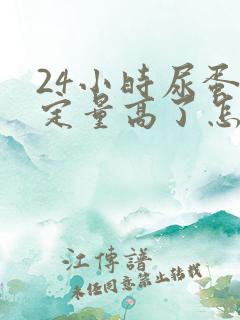 24小时尿蛋
定量高了怎
江傳譜
未经同意禁止转载